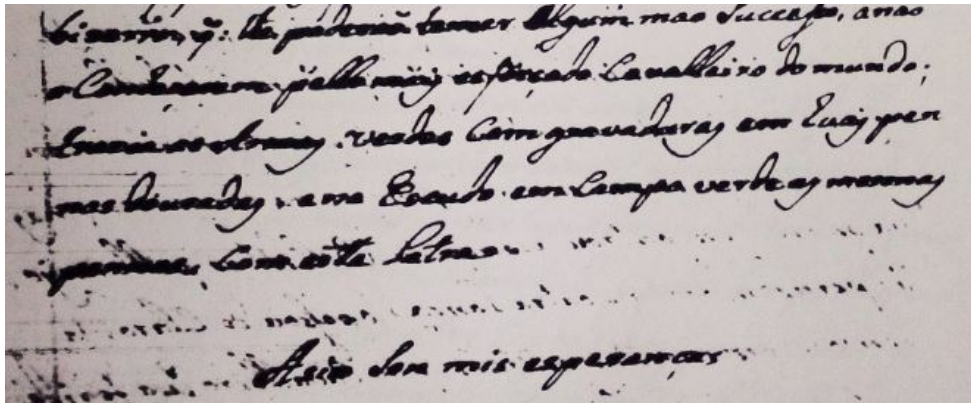 q̃ lhe poderiã temer Algum mao Successo, anão
o Conhecerem pello mais esforçado Cavalleiro do mundo;
trazia as Armas verdes Com gravaduras em Luas pen
nas douradas, e no Escudo em Campo verde as mesmas
pennas, Com esta Letra
Asie son mis esperanças